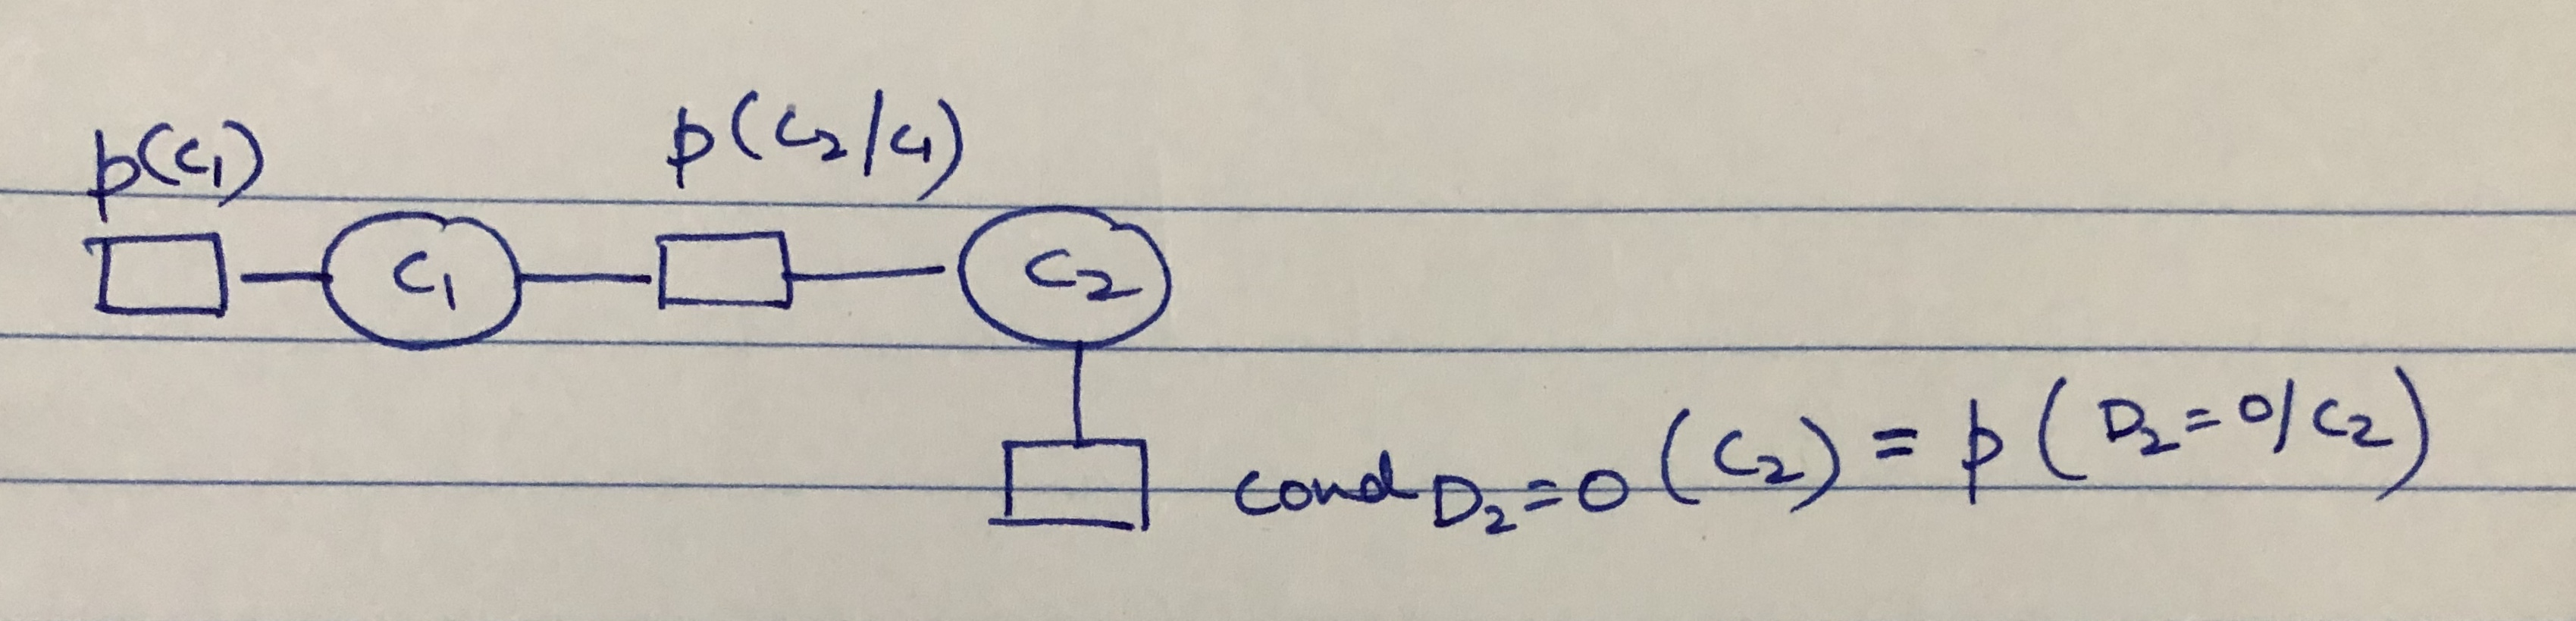 p(C₁) p(C₂/C₁)
C₁ C₂
cond D₂=0 (C₂) = p(D₂=0/C₂)